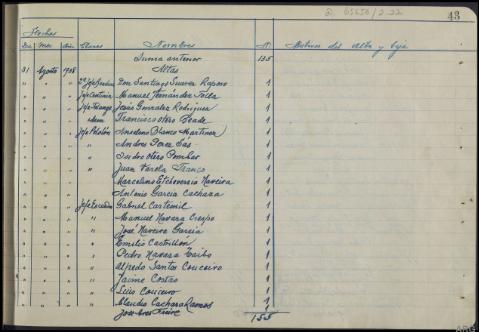 43
Fechas
Dia Mes Año Clases Nombres Nº Motivo del Alta y baja
Suma anterior 135
Altas
31 Agosto 1938 Don Santiago Suarez Raposo 1
" " " Manuel Fernández 1
" " " Jefe Falange Jesús Gonzalez Rodriguez 1
" " " idem Francisco Otero Boado 1
" " " Jefe Pelotón Anselmo Blanco Martinez 1
" " " " Andres Perez Sas 1
" " " " Isidro Otero 1
" " " " Juan Varela Franco 1
" " " Marcelino Etcheverria Naveira 1
" " " Antonio Garcia Cachaza 1
" " " Jefe Escuadra Gabriel Cartemil 1
" " " " Manuel Navaza Crespo 1
" " " " José Naveira Garcia 1
" " " " Emilio Castrillón 1
" " " " Pedro Navaza 1
" " " " Alfredo Santos Couceiro 1
" " " " Jaime Costas 1
" " " " Luis Couceiro 1
" " " " Claudio Cachaza Ramos 1
" " " " José 1
155